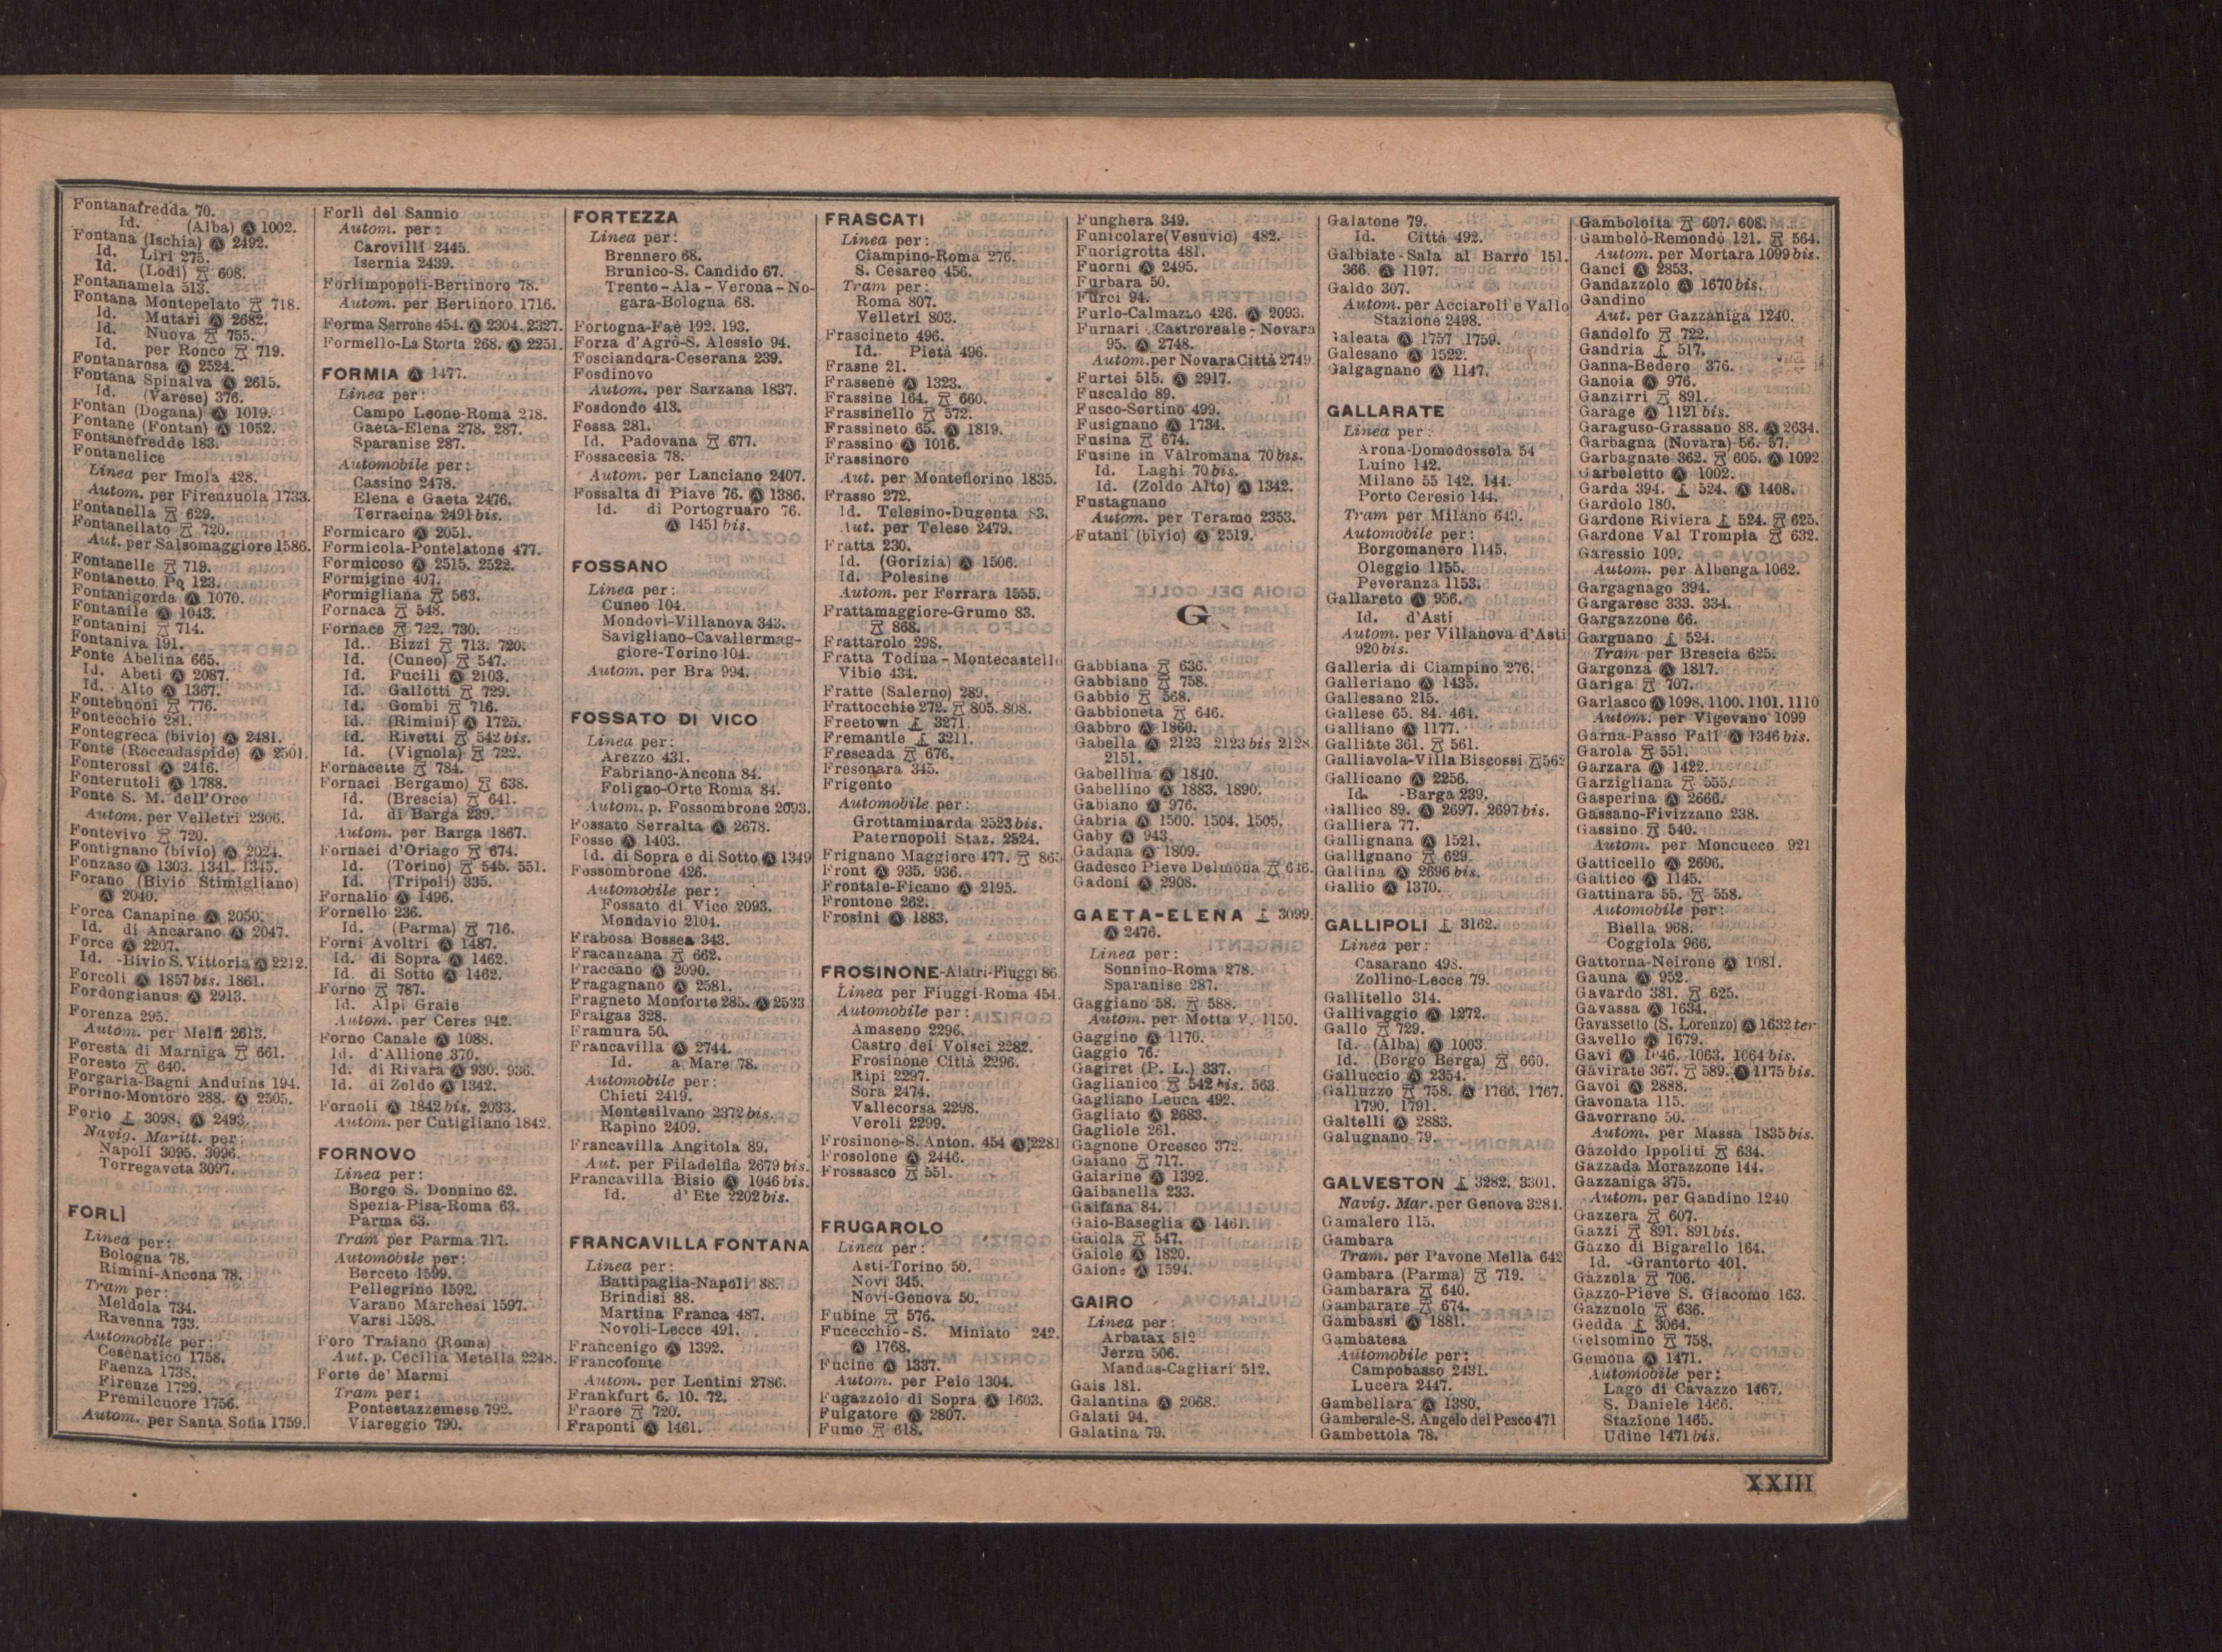 Fontanafredda 70.
Id. (Alba) Ⓐ 1002.
Fontana (Ischia) Ⓐ 2492.
Id. Liri 275.
Id. (Lodi) 608.
Fontanamela 513.
Fontana Montepelato 718.
Id. Mutari Ⓐ 2682.
Id. Nuova 755.
Id. per Ronco 719.
Fontanarosa Ⓐ 2524.
Fontana Spinalva Ⓐ 2615.
Id. (Varese) 376.
Fontan (Dogana) Ⓐ 1019.
Fontane (Fontan) Ⓐ 1052.
Fontanefredde 183.
Fontanelice
Linea per Imola 428.
Autom. per Firenzuola 1733.
Fontanella 629.
Fontanellato 720.
Aut. per Salsomaggiore 1586.
Fontanelle 719.
Fontanetto Po 123.
Fontanigorda Ⓐ 1070.
Fontanile Ⓐ 1043.
Fontanini 714.
Fontaniva 191.
Fonte Abelina 665.
Id. Abeti Ⓐ 2087.
Id. Alto Ⓐ 1367.
Fontebuoni 776.
Fontecchio 281.
Fontegreca (bivio) Ⓐ 2481.
Fonte (Roccadaspide) Ⓐ 2501.
Fonterossi Ⓐ 2416.
Fonterutoli Ⓐ 1788.
Fonte S. M. dell'Orco
Autom. per Velletri 2306.
Fontevivo 720.
Fontignano (bivio) Ⓐ 2024.
Fonzaso Ⓐ 1303. 1341. 1345.
Forano (Bivio Stimigliano)
Ⓐ 2040.
Forca Canapine Ⓐ 2050.
Id. di Ancarano Ⓐ 2047.
Force Ⓐ 2207.
Id. -Bivio S. Vittoria Ⓐ 2212.
Forcoli Ⓐ 1857 bis. 1861.
Fordongianus Ⓐ 2913.
Forenza 295.
Autom. per Melfi 2613.
Foresta di Marniga 661.
Foresto 640.
Forgaria-Bagni Anduins 194.
Forino-Montoro 288. Ⓐ 2505.
Forio 3098. Ⓐ 2493.
Navig. Maritt. per:
Napoli 3095. 3096.
Torregaveta 3097.
FORLÌ
Linea per:
Bologna 78.
Rimini-Ancona 78.
Tram per:
Meldola 734.
Ravenna 733.
Automobile per:
Cesenatico 1758.
Faenza 1738.
Firenze 1729.
Premilcuore 1756.
Autom. per Santa Sofia 1759.
Forlì del Sannio
Autom. per:
Carovilli 2445.
Isernia 2439.
Forlimpopoli-Bertinoro 78.
Autom. per Bertinoro 1716.
Forma Serrone 454. Ⓐ 2304. 2327.
Formello-La Storta 268. Ⓐ 2251.
FORMIA Ⓐ 1477.
Linea per:
Campo Leone-Roma 278.
Gaeta-Elena 278. 287.
Sparanise 287.
Automobile per:
Cassino 2478.
Elena e Gaeta 2476.
Terracina 2491 bis.
Formicaro Ⓐ 2051.
Formicola-Pontelatone 477.
Formicoso Ⓐ 2515. 2522.
Formigine 407.
Formigliana 563.
Fornaca 548.
Fornace 722. 730.
Id. Bizzi 713. 720.
Id. (Cuneo) 547.
Id. Fucili Ⓐ 2103.
Id. Gallotti 729.
Id. Gombi 716.
Id. (Rimini) Ⓐ 1725.
Id. Rivetti 542 bis.
Id. (Vignola) 722.
Fornacette 784.
Fornaci Bergamo) 638.
Id. (Brescia) 641.
Id. di Barga 239.
Autom. per Barga 1867.
Fornaci d'Oriago 674.
Id. (Torino) 545. 551.
Id. (Tripoli) 335.
Fornalio Ⓐ 1496.
Fornello 236.
Id. (Parma) 716.
Forni Avoltri Ⓐ 1487.
Id. di Sopra Ⓐ 1462.
Id. di Sotto Ⓐ 1462.
Forno 787.
Id. Alpi Graie
Autom. per Ceres 942.
Forno Canale Ⓐ 1088.
Id. d'Allione 370.
Id. di Rivara Ⓐ 930. 936.
Id. di Zoldo Ⓐ 1342.
Fornoli Ⓐ 1842 bis. 2033.
Autom. per Cutigliano 1842.
FORNOVO
Linea per:
Borgo S. Donnino 62.
Spezia-Pisa-Roma 63.
Parma 63.
Tram per Parma 717.
Automobile per:
Berceto 1599.
Pellegrino 1592.
Varano Marchesi 1597.
Varsi 1598.
Foro Traiano (Roma)
Aut. p. Cecilia Metella 2248.
Forte de' Marmi
Tram per:
Pontestazzemese 792.
Viareggio 790.
FORTEZZA
Linea per:
Brennero 68.
Brunico-S. Candido 67.
Trento-Ala-Verona-No-
gara-Bologna 68.
Fortogna-Faè 192. 193.
Forza d'Agrò-S. Alessio 94.
Fosciandora-Ceserana 239.
Fosdinovo
Autom. per Sarzana 1837.
Fosdondo 413.
Fossa 281.
Id. Padovana 677.
Fossacesia 78.
Autom. per Lanciano 2407.
Fossalta di Piave 76. Ⓐ 1386.
Id. di Portogruaro 76.
Ⓐ 1451 bis.
FOSSANO
Linea per:
Cuneo 104.
Mondovì-Villanova 343.
Savigliano-Cavallermag-
giore-Torino 104.
Autom. per Bra 994.
FOSSATO DI VICO
Linea per:
Arezzo 431.
Fabriano-Ancona 84.
Foligno-Orte Roma 84.
Autom. p. Fossombrone 2093.
Fossato Serralta Ⓐ 2678.
Fosse Ⓐ 1403.
Id. di Sopra e di Sotto Ⓐ 1349
Fossombrone 426.
Automobile per:
Fossato di Vico 2093.
Mondavio 2104.
Frabosa Bossea 343.
Fracanzana 662.
Fraccano Ⓐ 2090.
Fragagnano Ⓐ 2581.
Fragneto Monforte 285. Ⓐ 2533
Fraigas 328.
Framura 50.
Francavilla Ⓐ 2744.
Id. a Mare 78.
Automobile per:
Chieti 2419.
Montesilvano 2372 bis.
Rapino 2409.
Francavilla Angitola 89.
Aut. per Filadelfia 2679 bis.
Francavilla Bisio Ⓐ 1046 bis.
Id. d'Ete 2202 bis.
FRANCAVILLA FONTANA
Linea per:
Battipaglia-Napoli 88.
Brindisi 88.
Martina Franca 487.
Novoli-Lecce 491.
Francenigo Ⓐ 1392.
Francofonte
Autom. per Lentini 2786.
Frankfurt 6. 10. 72.
Fraore 720.
Fraponti Ⓐ 1461.
FRASCATI
Linea per:
Ciampino-Roma 276.
S. Cesareo 456.
Tram per:
Roma 807.
Velletri 803.
Frascineto 496.
Id. Pietà 496.
Frasne 21.
Frassenè Ⓐ 1323.
Frassine 164. 660.
Frassinello 572.
Frassineto 65. Ⓐ 1819.
Frassino Ⓐ 1016.
Frassinoro
Aut. per Montefiorino 1835.
Frasso 272.
Id. Telesino-Dugenta 83.
Aut. per Telese 2479.
Fratta 230.
Id. (Gorizia) Ⓐ 1506.
Id. Polesine
Autom. per Ferrara 1555.
Frattamaggiore-Grumo 83.
868.
Frattarolo 298.
Fratta Todina-Montecastello
Vibio 434.
Fratte (Salerno) 289.
Frattocchie 272. 805. 808.
Freetown 3271.
Fremantle 3211.
Frescada 676.
Fresonara 345.
Frigento
Automobile per:
Grottaminarda 2523 bis.
Paternopoli Staz. 2524.
Frignano Maggiore 477.
Front Ⓐ 935. 936.
Frontale-Ficano Ⓐ 2195.
Frontone 262.
Frosini Ⓐ 1883.
FROSINONE-Alatri-Fiuggi 86
Linea per Fiuggi-Roma 454.
Automobile per:
Amaseno 2296.
Castro dei Volsci 2282.
Frosinone Città 2296.
Ripi 2297.
Sora 2474.
Vallecorsa 2298.
Veroli 2299.
Frosinone-S. Anton. 454 Ⓐ 2281
Frosolone Ⓐ 2446.
Frossasco 551.
FRUGAROLO
Linea per:
Asti-Torino 50.
Novi 345.
Novi-Genova 50.
Fubine 576.
Fucecchio-S. Miniato 242.
Ⓐ 1768.
Fucine Ⓐ 1337.
Autom. per Peio 1304.
Fugazzolo di Sopra Ⓐ 1603.
Fulgatore Ⓐ 2807.
Fumo 618.
Funghera 349.
Funicolare(Vesuvio) 482.
Fuorigrotta 481.
Fuorni Ⓐ 2495.
Furbara 50.
Furci 94.
Furlo-Calmazzo 426. Ⓐ 2093.
Furnari-Castroreale-Novara
95. Ⓐ 2748.
Autom. per Novara Città 2749.
Furtei 515. Ⓐ 2917.
Fuscaldo 89.
Fusco-Sortino 499.
Fusignano Ⓐ 1734.
Fusina 674.
Fusine in Valromana 70 bis.
Id. Laghi 70 bis.
Id. (Zoldo Alto) Ⓐ 1342.
Fustagnano
Autom. per Teramo 2353.
Futani (bivio) Ⓐ 2519.
G
Gabbiana 636.
Gabbiano 758.
Gabbio 568.
Gabbioneta 646.
Gabbro Ⓐ 1860.
Gabella Ⓐ 2123 2123 bis 2128.
2151.
Gabellina Ⓐ 1840.
Gabellino Ⓐ 1883. 1890.
Gabiano Ⓐ 976.
Gabria Ⓐ 1500. 1504. 1505.
Gaby Ⓐ 943
Gadana Ⓐ 1809.
Gadesco Pieve Delmona 646.
Gadoni Ⓐ 2908.
GAETA-ELENA 3099.
Ⓐ 2476.
Linea per:
Sonnino-Roma 278.
Sparanise 287.
Gaggiano 58. 588.
Autom. per Motta V. 1150.
Gaggino Ⓐ 1170.
Gaggio 76.
Gagiret (P. L.) 337.
Gaglianico 542 bis. 563
Gagliano Leuca 492.
Gagliato Ⓐ 2683.
Gagliole 261.
Gagnone Orcesco 372.
Gaiano 717.
Gaiarine Ⓐ 1392.
Gaibanella 233.
Gaifana 84.
Gaio-Baseglia Ⓐ 1461.
Gaiola 547.
Gaiole Ⓐ 1820.
Gaione Ⓐ 1594.
GAIRO
Linea per:
Arbatax 512
Jerzu 506.
Mandas-Cagliari 512.
Gais 181.
Galantina Ⓐ 2068.
Galati 94.
Galatina 79.
Galatone 79.
Id. Città 492.
Galbiate-Sala al Barro 151.
366. Ⓐ 1197.
Galdo 307.
Autom. per Acciaroli e Vallo
Stazione 2498.
Galeata Ⓐ 1757 1759.
Galesano Ⓐ 1522.
Galgagnano Ⓐ 1147.
GALLARATE
Linea per:
Arona-Domodossola 54
Luino 142.
Milano 55 142. 144.
Porto Ceresio 144.
Tram per Milano 649.
Automobile per:
Borgomanero 1145.
Oleggio 1155.
Peveranza 1153.
Gallareto Ⓐ 956.
Id. d'Asti
Autom. per Villanova d'Asti
920 bis.
Galleria di Ciampino 276.
Galleriano Ⓐ 1435.
Gallesano 215.
Gallese 65. 84. 464.
Galliano Ⓐ 1177.
Galliate 361. 561.
Galliavola-Villa Biscossi 562
Gallicano Ⓐ 2256.
Id. -Barga 239.
Gallico 89. Ⓐ 2697. 2697 bis.
Galliera 77.
Gallignana Ⓐ 1521.
Gallignano 629.
Gallina Ⓐ 2696 bis.
Gallio Ⓐ 1370.
GALLIPOLI 3162.
Linea per:
Casarano 493.
Zollino-Lecce 79.
Gallitello 314.
Gallivaggio Ⓐ 1272.
Gallo 729.
Id. (Alba) Ⓐ 1003.
Id. (Borgo Berga) 660.
Galluccio Ⓐ 2354.
Galluzzo 758. Ⓐ 1766. 1767.
1790. 1791.
Galtelli Ⓐ 2883.
Galugnano 79.
GALVESTON 3282. 3301.
Navig. Mar. per Genova 3284.
Gamalero 115.
Gambara
Tram. per Pavone Mella 642
Gambara (Parma) 719.
Gambarara 640.
Gambarare 674.
Gambassi Ⓐ 1881.
Gambatesa
Automobile per:
Campobasso 2431.
Lucera 2447.
Gambellara Ⓐ 1380.
Gamberale-S. Angelo del Pesco 471
Gambettola 78.
Gamboloita 607. 608.
Gambolò-Remondò 121. 564.
Autom. per Mortara 1099 bis.
Ganci Ⓐ 2853.
Gandazzolo Ⓐ 1670 bis.
Gandino
Aut. per Gazzaniga 1240.
Gandolfo 722.
Gandria 517.
Ganna-Bedero 376.
Ganoia Ⓐ 976.
Ganzirri 891.
Garage Ⓐ 1121 bis.
Garaguso-Grassano 88. Ⓐ 2634.
Garbagna (Novara) 56. 57.
Garbagnate 362. 605. Ⓐ 1092
Garbeletto Ⓐ 1002.
Garda 394. 524. Ⓐ 1408.
Gardolo 180.
Gardone Riviera 524. 625.
Gardone Val Trompia 632.
Garessio 109.
Autom. per Albenga 1062.
Gargagnago 394.
Gargaresc 333. 334.
Gargazzone 66.
Gargnano 524.
Tram per Brescia 625.
Gargonza Ⓐ 1817.
Gariga 707.
Garlasco Ⓐ 1098. 1100. 1101. 1110
Autom. per Vigevano 1099
Garna-Passo Fail Ⓐ 1346 bis.
Garola 551.
Garzara Ⓐ 1422.
Garzigliana 555.
Gasperina Ⓐ 2666.
Gassano-Fivizzano 238.
Gassino 540.
Autom. per Moncucco 921
Gatticello Ⓐ 2696.
Gattico Ⓐ 1145.
Gattinara 55. 558.
Automobile per:
Biella 968.
Coggiola 966.
Gattorna-Neirone Ⓐ 1081.
Gauna Ⓐ 952.
Gavardo 381. 625.
Gavassa Ⓐ 1634.
Gavassetto (S. Lorenzo) Ⓐ 1632 ter
Gavello Ⓐ 1679.
Gavi Ⓐ 1046. 1063. 1064 bis.
Gavirate 367. 589. Ⓐ 1175 bis.
Gavoi Ⓐ 2888.
Gavonata 115.
Gavorrano 50.
Autom. per Massa 1835 bis.
Gazoldo Ippoliti 634.
Gazzada Morazzone 144.
Gazzaniga 375.
Autom. per Gandino 1240
Gazzera 607.
Gazzi 891. 891 bis.
Gazzo di Bigarello 164.
Id. -Grantorto 401.
Gazzola 706.
Gazzo-Pieve S. Giacomo 163.
Gazzuolo 636.
Gedda 3064.
Gelsomino 758.
Gemona Ⓐ 1471.
Automobile per:
Lago di Cavazzo 1467.
S. Daniele 1466.
Stazione 1465.
Udine 1471 bis.
XXIII